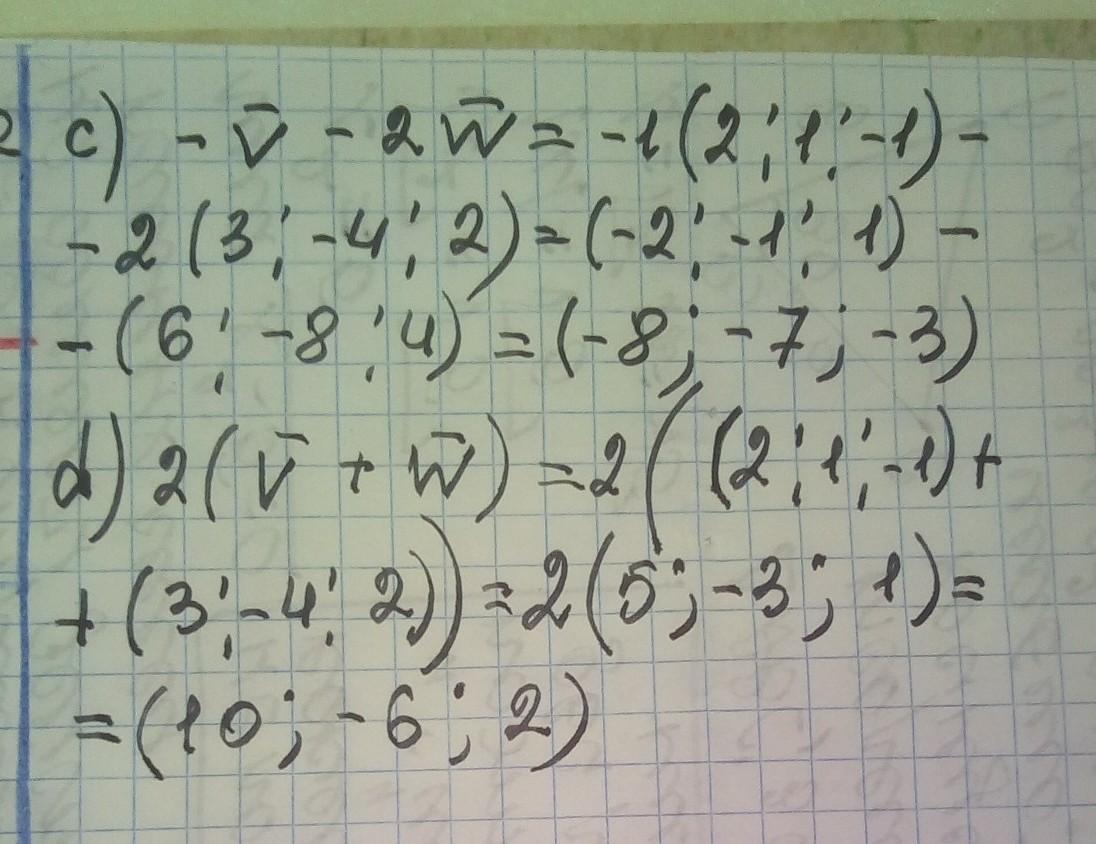 c) - v̄ - 2 w̄ = -1 (2; 1; -1) -
- 2 (3; -4; 2) = (-2; -1; 1) -
- (6; -8; 4) = (-8; -7; -3)
d) 2 ( v̄ + w̄ ) = 2 ( (2; 1; -1) +
+ (3; -4; 2) ) = 2 (5; -3; 1) =
= (10; -6; 2)